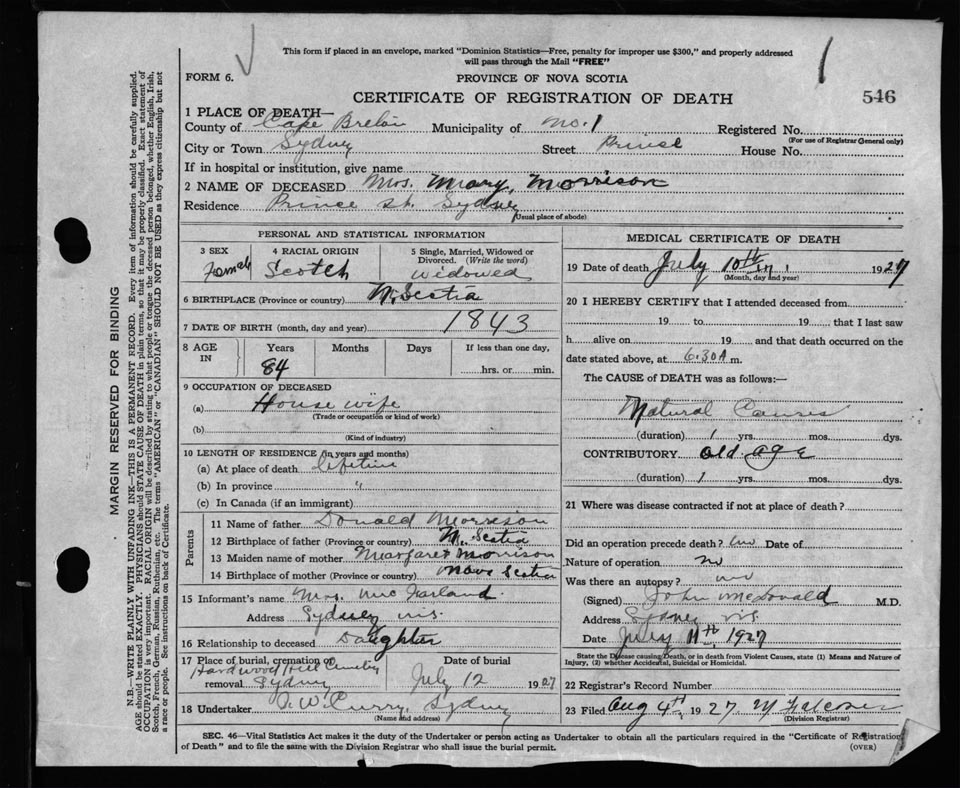 This form if placed in an envelope, marked "Dominion Statistics—Free, penalty for improper use $300," and properly addressed
will pass through the Mail "FREE"
FORM 6.
PROVINCE OF NOVA SCOTIA
546
CERTIFICATE OF REGISTRATION OF DEATH
1 PLACE OF DEATH—
County of Cape Breton Municipality of No. 1 Registered No.
(For use of Registrar General only)
City or Town Sydney Street Prince House No.
If in hospital or institution, give name
2 NAME OF DECEASED Mrs. Mary Morrison
Residence Prince St. Sydney
(Usual place of abode)
PERSONAL AND STATISTICAL INFORMATION
3 SEX 4 RACIAL ORIGIN 5 Single, Married, Widowed or
Divorced. (Write the word)
Female Scotch widowed
6 BIRTHPLACE (Province or country) N. Scotia
7 DATE OF BIRTH (month, day and year) 1843
8 AGE IN Years Months Days If less than one day,
84 hrs. or min.
9 OCCUPATION OF DECEASED
(a) House wife
(Trade or occupation or kind of work)
(b)
(Kind of industry)
10 LENGTH OF RESIDENCE (in years and months)
(a) At place of death lifetime
(b) In province "
(c) In Canada (if an immigrant)
Parents
11 Name of father Donald Morrison
12 Birthplace of father (Province or country) N. Scotia
13 Maiden name of mother Margaret Morrison
14 Birthplace of mother (Province or country) Nova Scotia
15 Informant's name Mrs. McFarland
Address Sydney N.S.
16 Relationship to deceased Daughter
17 Place of burial, cremation or Date of burial
Hardwood Hill Cemetery
removal Sydney July 12 1927
18 Undertaker W. Curry, Sydney
(Name and address)
MEDICAL CERTIFICATE OF DEATH
19 Date of death July 10th 1927
(Month, day and year)
20 I HEREBY CERTIFY that I attended deceased from
19 to 19 that I last saw
h alive on 19 and that death occurred on the
date stated above, at 6.30 A m.
The CAUSE OF DEATH was as follows:—
Natural Causes
(duration) 1 yrs. mos. dys.
CONTRIBUTORY old age
(duration) 1 yrs. mos. dys.
21 Where was disease contracted if not at place of death?
Did an operation precede death? no Date of
Nature of operation no
Was there an autopsy? no
(Signed) John McDonald M.D.
Address Sydney N.S.
Date July 11th 1927
State the Disease causing Death, or in death from Violent Causes, state (1) Means and Nature of
Injury, (2) whether Accidental, Suicidal or Homicidal.
22 Registrar's Record Number
23 Filed Aug 4th, 1927. M Falconer
(Division Registrar)
SEC. 46—Vital Statistics Act makes it the duty of the Undertaker or person acting as Undertaker to obtain all the particulars required in the "Certificate of Registration
of Death" and to file the same with the Division Registrar who shall issue the burial permit.
(OVER)
MARGIN RESERVED FOR BINDING
N.B.—WRITE PLAINLY WITH UNFADING INK—THIS IS A PERMANENT RECORD. Every item of information should be carefully supplied.
AGE should be stated EXACTLY. PHYSICIANS should STATE CAUSE OF DEATH in plain terms, so that it may be properly classified. Exact statement of
OCCUPATION is very important. RACIAL ORIGIN will be described by stating to what people or tongue the deceased person belonged, whether English, Irish,
Scotch, French, German, Russian, Ruthenian, etc. The terms "AMERICAN" or "CANADIAN" SHOULD NOT BE USED as they express citizenship but not
a race or people. See instructions on back of Certificate.